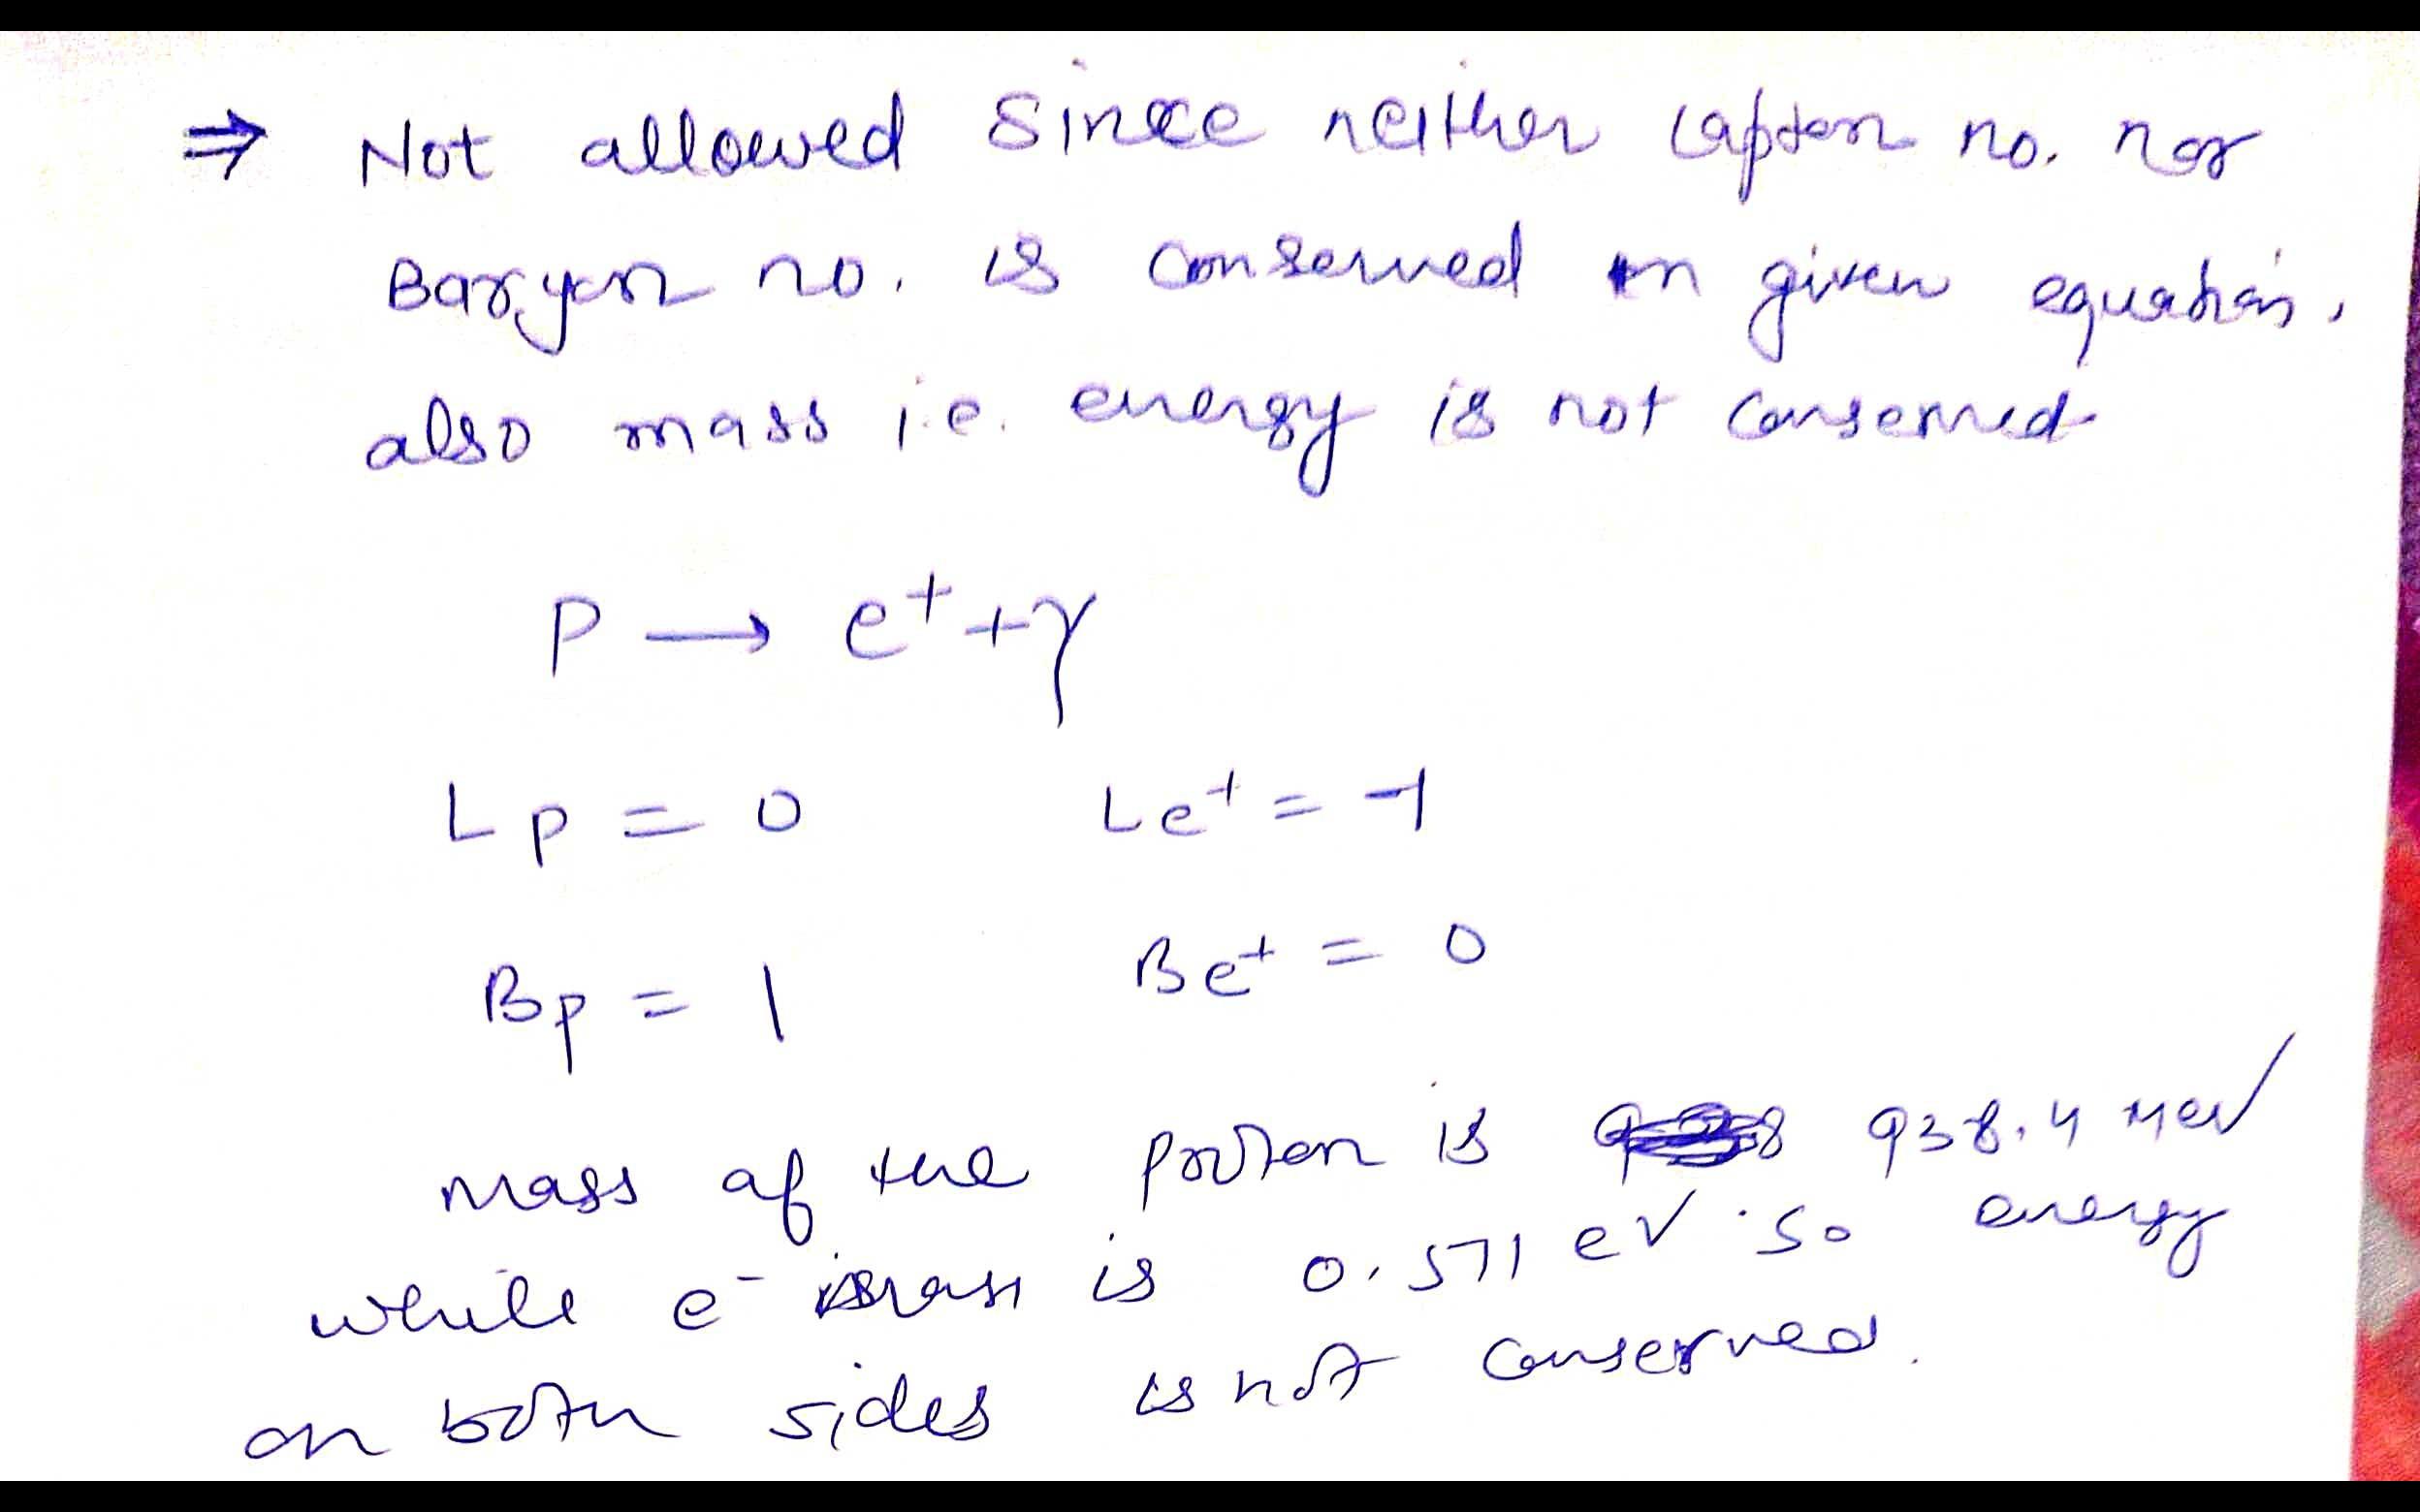 ⇒ Not allowed since neither lapton no. nor
Baryon no. is conserved in given equation.
also mass i.e. energy is not conserved
P → e⁺ + γ
Lp = 0 Le⁺ = -1
Bp = 1 Be⁺ = 0
mass of the proton is 938.4 MeV
while e⁻ mass is 0.511 eV. So energy
on both sides is not conserved.